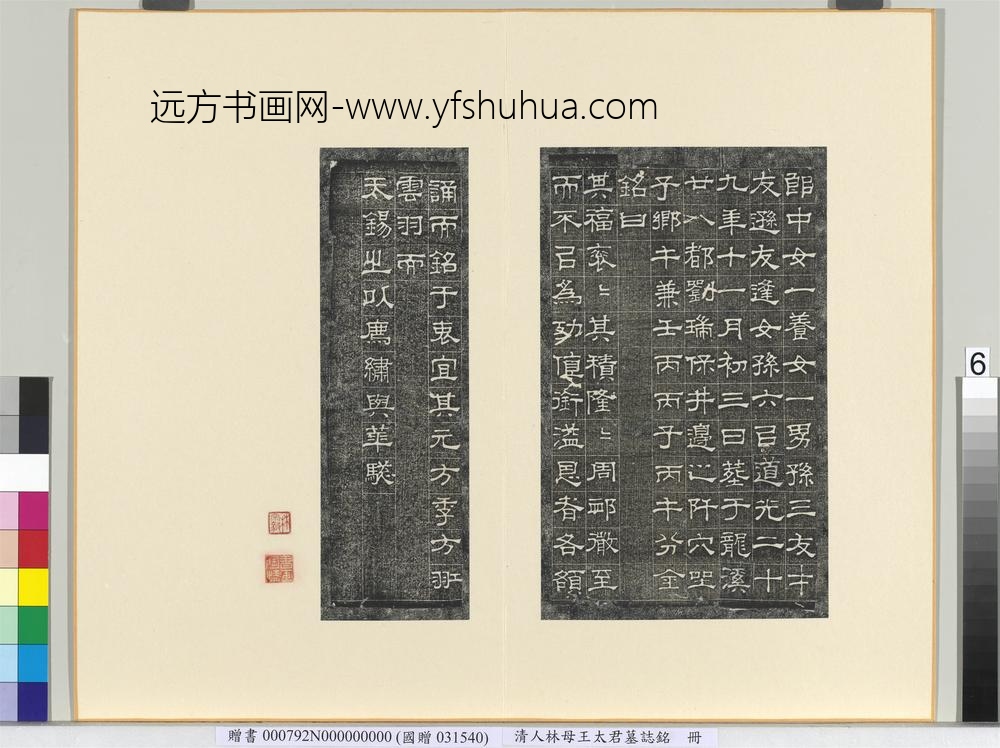 远方书画网-www.yfshuhua.com
郎中女一養女一男孫三友才
友遜友逢女孫六㠯道光二十
九年十一月初三日塟于龍溪
廿八都劉瑞保井邊之阡穴坐
子鄉午兼壬丙丙子丙午分金
銘曰
其福衮〻其積隆〻周卹徹至
而不㠯為功值銜溢恩者各頟
誦而銘于衷宜其元方季方羾
雲羽而
天錫之以廌繡與華
6
贈書 000792N000000000 (國贈 031540) 清人林母王太君墓誌銘 冊